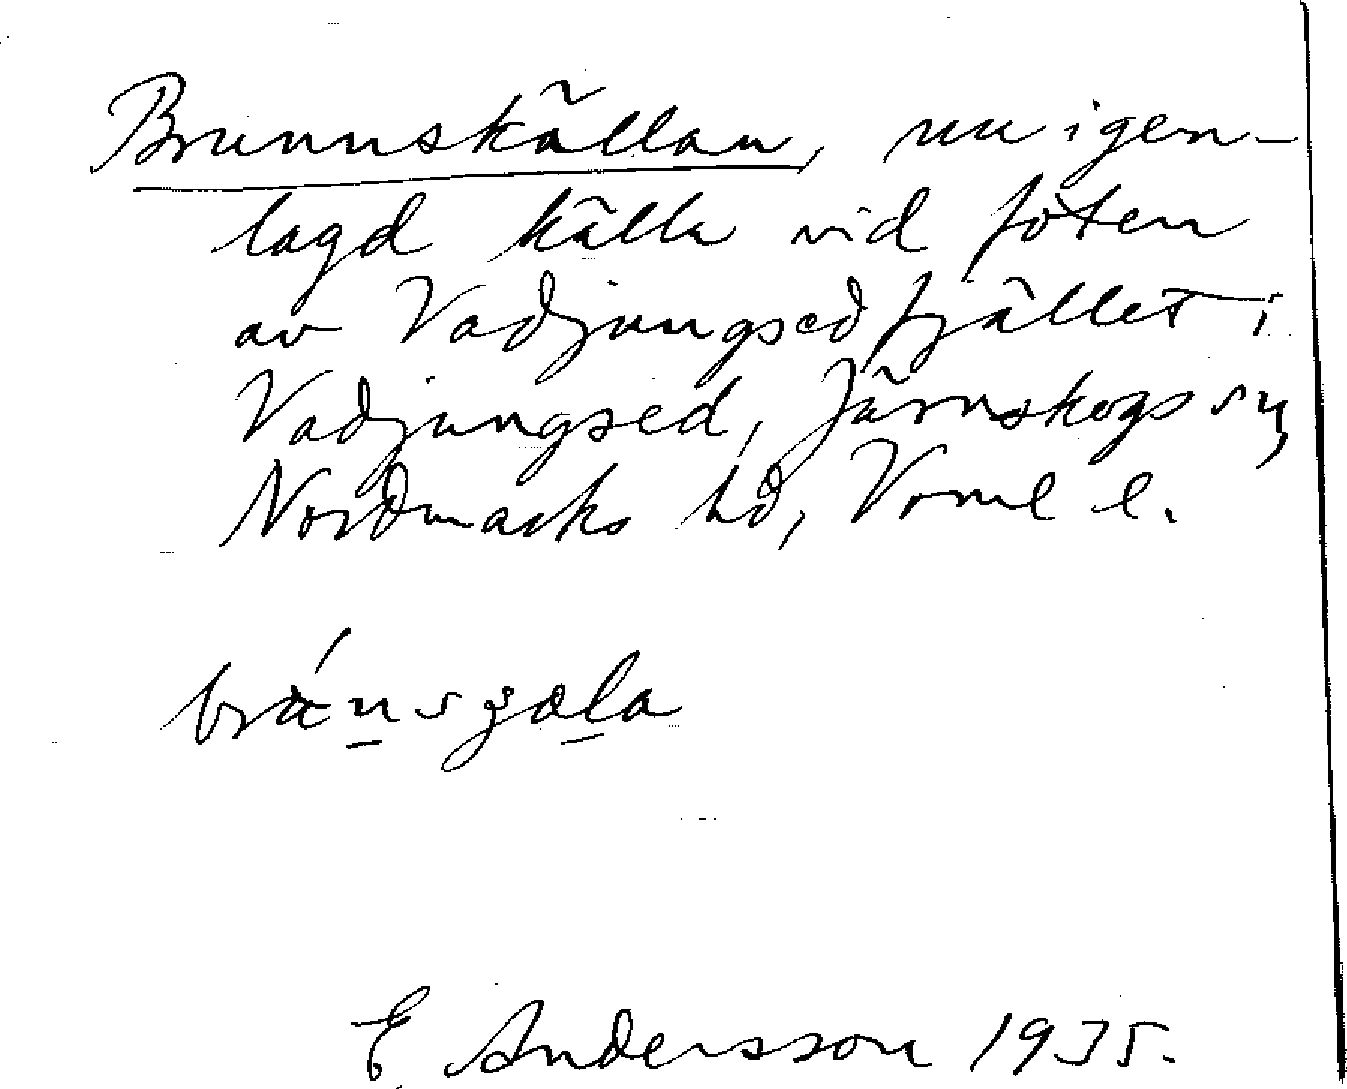 Brunnskällan, nu igen-
lagd källa vid foten
av Vadjungsedfjället i
Vadjungsed, Järnskogs sn,
Nordmarks hd, Vrml l.
E Andersson 1935.